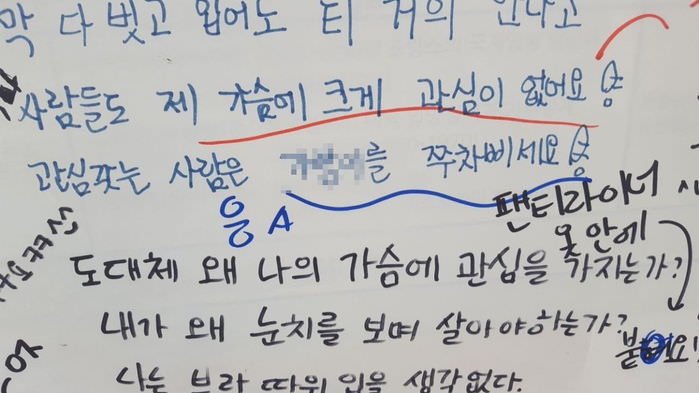 막 다 벗고 입어도 티 거의 안나고
사람들도 제 가슴에 크게 관심이 없어요
관심갖는 사람은 를 쭈차삐세요
응 A
팬티라이너
옷 안에
도대체 왜 나의 가슴에 관심을 가지는가?
내가 왜 눈치를 보며 살아야하는가?
붙 요!
나는 브라 따위 입을 생각없다.